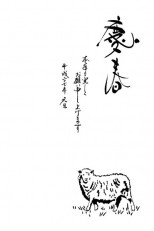 慶春
本年も宜しく
お願い申し上げます
平成二十七年 元旦